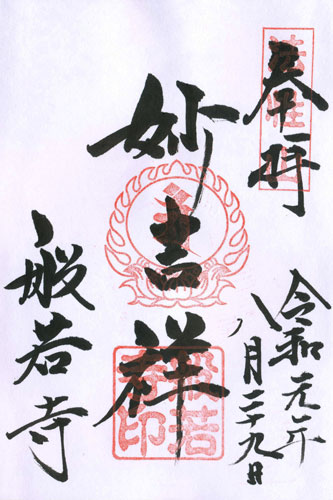 奉拝
法性山
令和元年
八月二十九日
妙吉祥
般若
寺印
般若寺